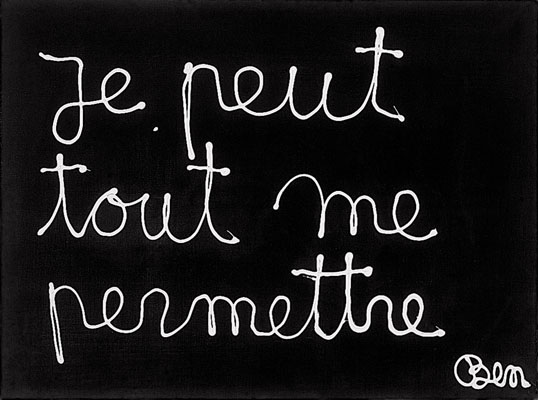 Je peut
tout me
permettre
Ben